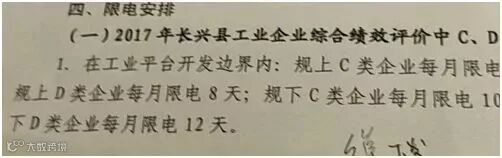 四、限电安排
(一)2017年长兴县工业企业综合绩效评价中C、D
1、在工业平台开发边界内：规上C类企业每月限电
规上D类企业每月限电8天；规下C类企业每月限电10
下D类企业每月限电12天。
下发
大数跨境